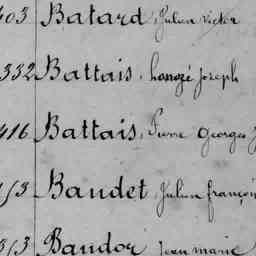 403 Batard, Julien Victor
332 Battais, honoré Joseph
416 Battais, Pierre Georges
Baudet, Julien françois
Baudor, Jean marie